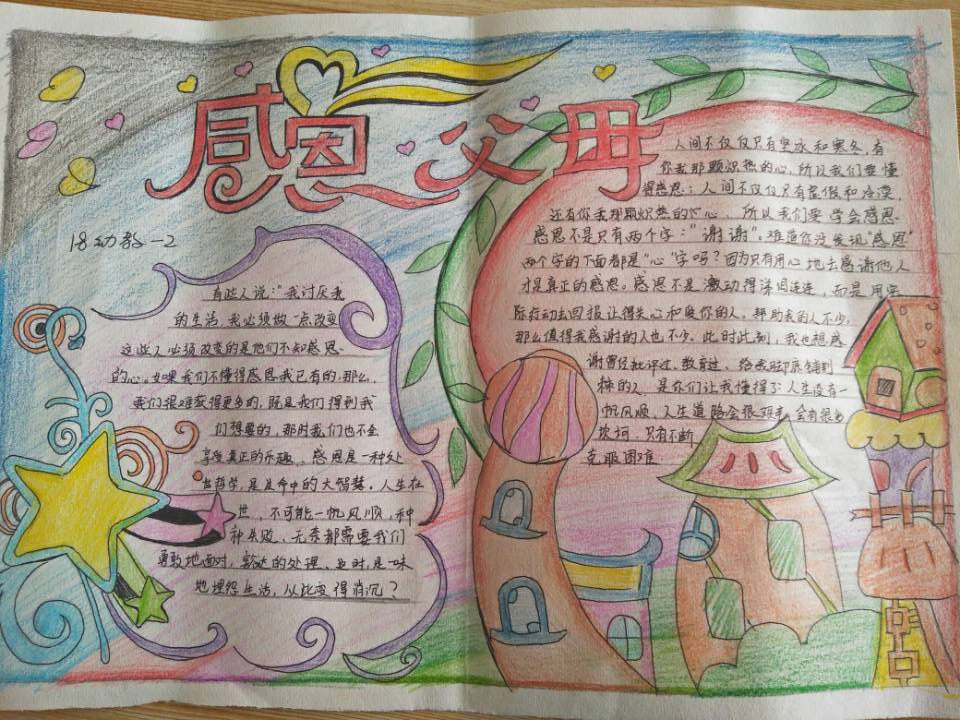 感恩父母
18幼教-2
有些人说:"我讨厌我
的生活,我必须做一点改变
这些人必须改变的是他们不知感恩
的心。如果我们不懂得感恩我已有的,那么,
我们很难获得更多的,既是我们得到我
们想要的,那时我们也不会
享受真正的乐趣。感恩是一种处
世哲学,是生命中的大智慧。人生在
世,不可能一帆风顺,种
种失败、无奈都需要我们
勇敢地面对,豁达的处理。当时,是一味
地埋怨生活,从此变得消沉?
人间不仅仅只有坚冰和寒冬,有
你我那颗炽热的心,所以我们要懂
得感恩;人间不仅仅只有虚假和冷漠,
还有你我那颗炽热的心,所以我们要学会感恩
感恩不是只有两个字:"谢谢"。难道你没发现"感恩"
两个字的下面都是"心"字吗?因为只有用心地去感谢他人
才是真正的感恩。感恩不是激动得涕泪连连,而是用实
际行动去回报让得失心和暖你的人。帮助我的人不少,
那么值得我感谢的人也不少。此时此刻,我也想感
谢曾经批评过、教育过、给我
的人,是你们让我懂得了:人生没有一
帆风顺,人生道路会很艰难,会有很多
坎坷,只有不断
克服困难